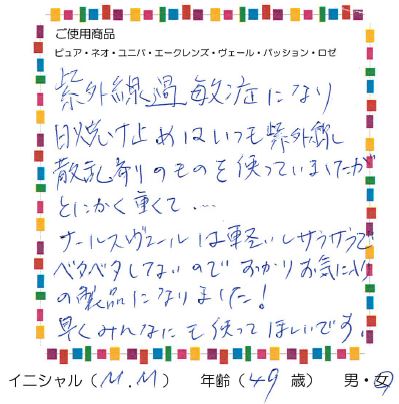 ご使用商品
ピュア・ネオ・ユニバ・エークレンズ・ヴェール・パッション・ロゼ
紫外線過敏症になり
日焼け止めはいつも紫外線
散乱剤のものを使っていましたが
とにかく重くて…
ナールスヴェールは軽いしサラサラで
ベタベタしないので おかりお気に入り
の製品になりました!
早くみんなにも使ってほしいです。
イニシャル(M.M) 年齢(49歳) 男・女